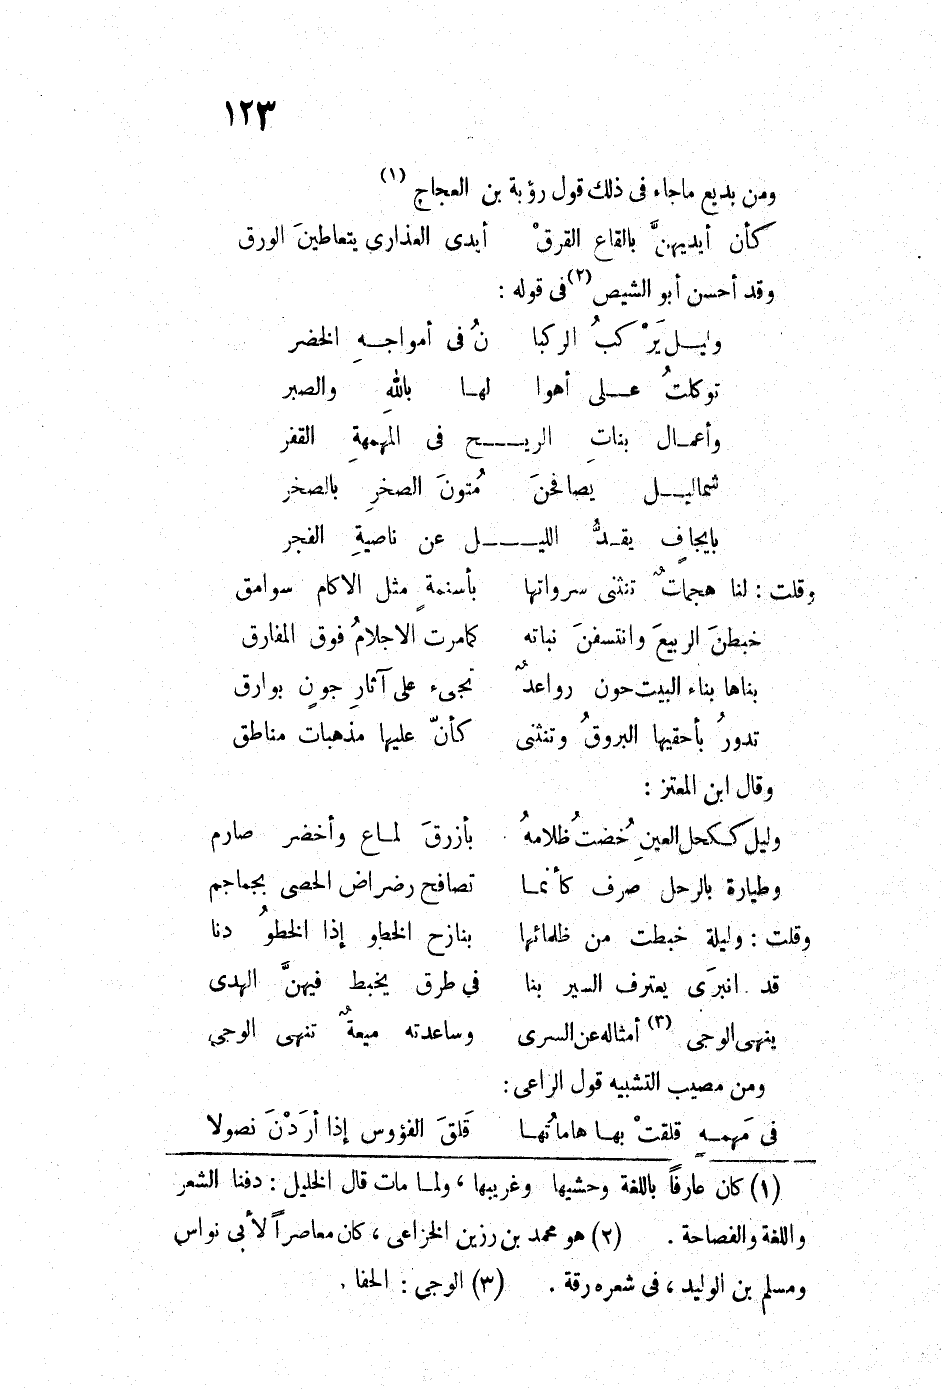 ١٢٣
ومن بديع ماجاء فى ذلك قول رؤبة بن العجاج (١)
كأن أيديهنَّ بالقاع القرقْ أيدى العذارى يتعاطينَ الورق
وقد أحسن أبو الشيص (٢) فى قوله :
وليـل يَرْكبُ الركبا نُ فى أمواجـهِ الخضر
توكلتُ عـلى أهوا لهـا باللهِ والصبر
وأعمـال بناتِ الريـح فى المهمهةِ القفر
شماليـل يصافحنَ مُتونَ الصخرِ بالصخر
بايجافٍ يقـدُّ الليـل عن ناصيةِ الفجر
وقلت : لنا هجماتٌ تنثنى سرواتها بأسنمةٍ مثل الاكام سوامق
خبطنَ الربيعَ وانتسفنَ نباته كمامرت الاجلامُ فوق المفارق
بناها بناء البيت حون رواعدٌ تجىء على آثارِ جونٍ بوارق
تدورُ بأحقيها البروقُ وتنثنى كأنّ عليها مذهبات مناطق
وقال ابن المعتز :
وليل ككحل العينِ خُضتُ ظلامهُ بأزرقَ لمـاع وأخضر صارم
وطيارة بالرحل صرف كأنمـا تصافح رضراض الحصى بجماجم
وقلت : وليلة خبطت من ظلمائها بنازح الخطو إذا الخطوُ دنا
قد انبرَى يعترف السير بنا في طرق يخبط فيهنَّ الهدى
ينهى الوجى (٣) أمثاله عن السرى وساعدته ميعةٌ تنهى الوجي
ومن مصيب التشبيه قول الراعى :
فى مَهمـهٍ قلقتْ بهـا هاماتُهـا قَلقَ الفؤوس إذا أرَدْنَ نصولا
(١) كان عارفاً باللغة وحشيها وغريبها ، ولمـا مات قال الخليل : دفنا الشعر
واللغة والفصاحة . (٢) هو محمد بن رزين الخزاعى ، كان معاصراً لأبى نواس
ومسلم بن الوليد ، فى شعره رقة . (٣) الوجي : الحفا .